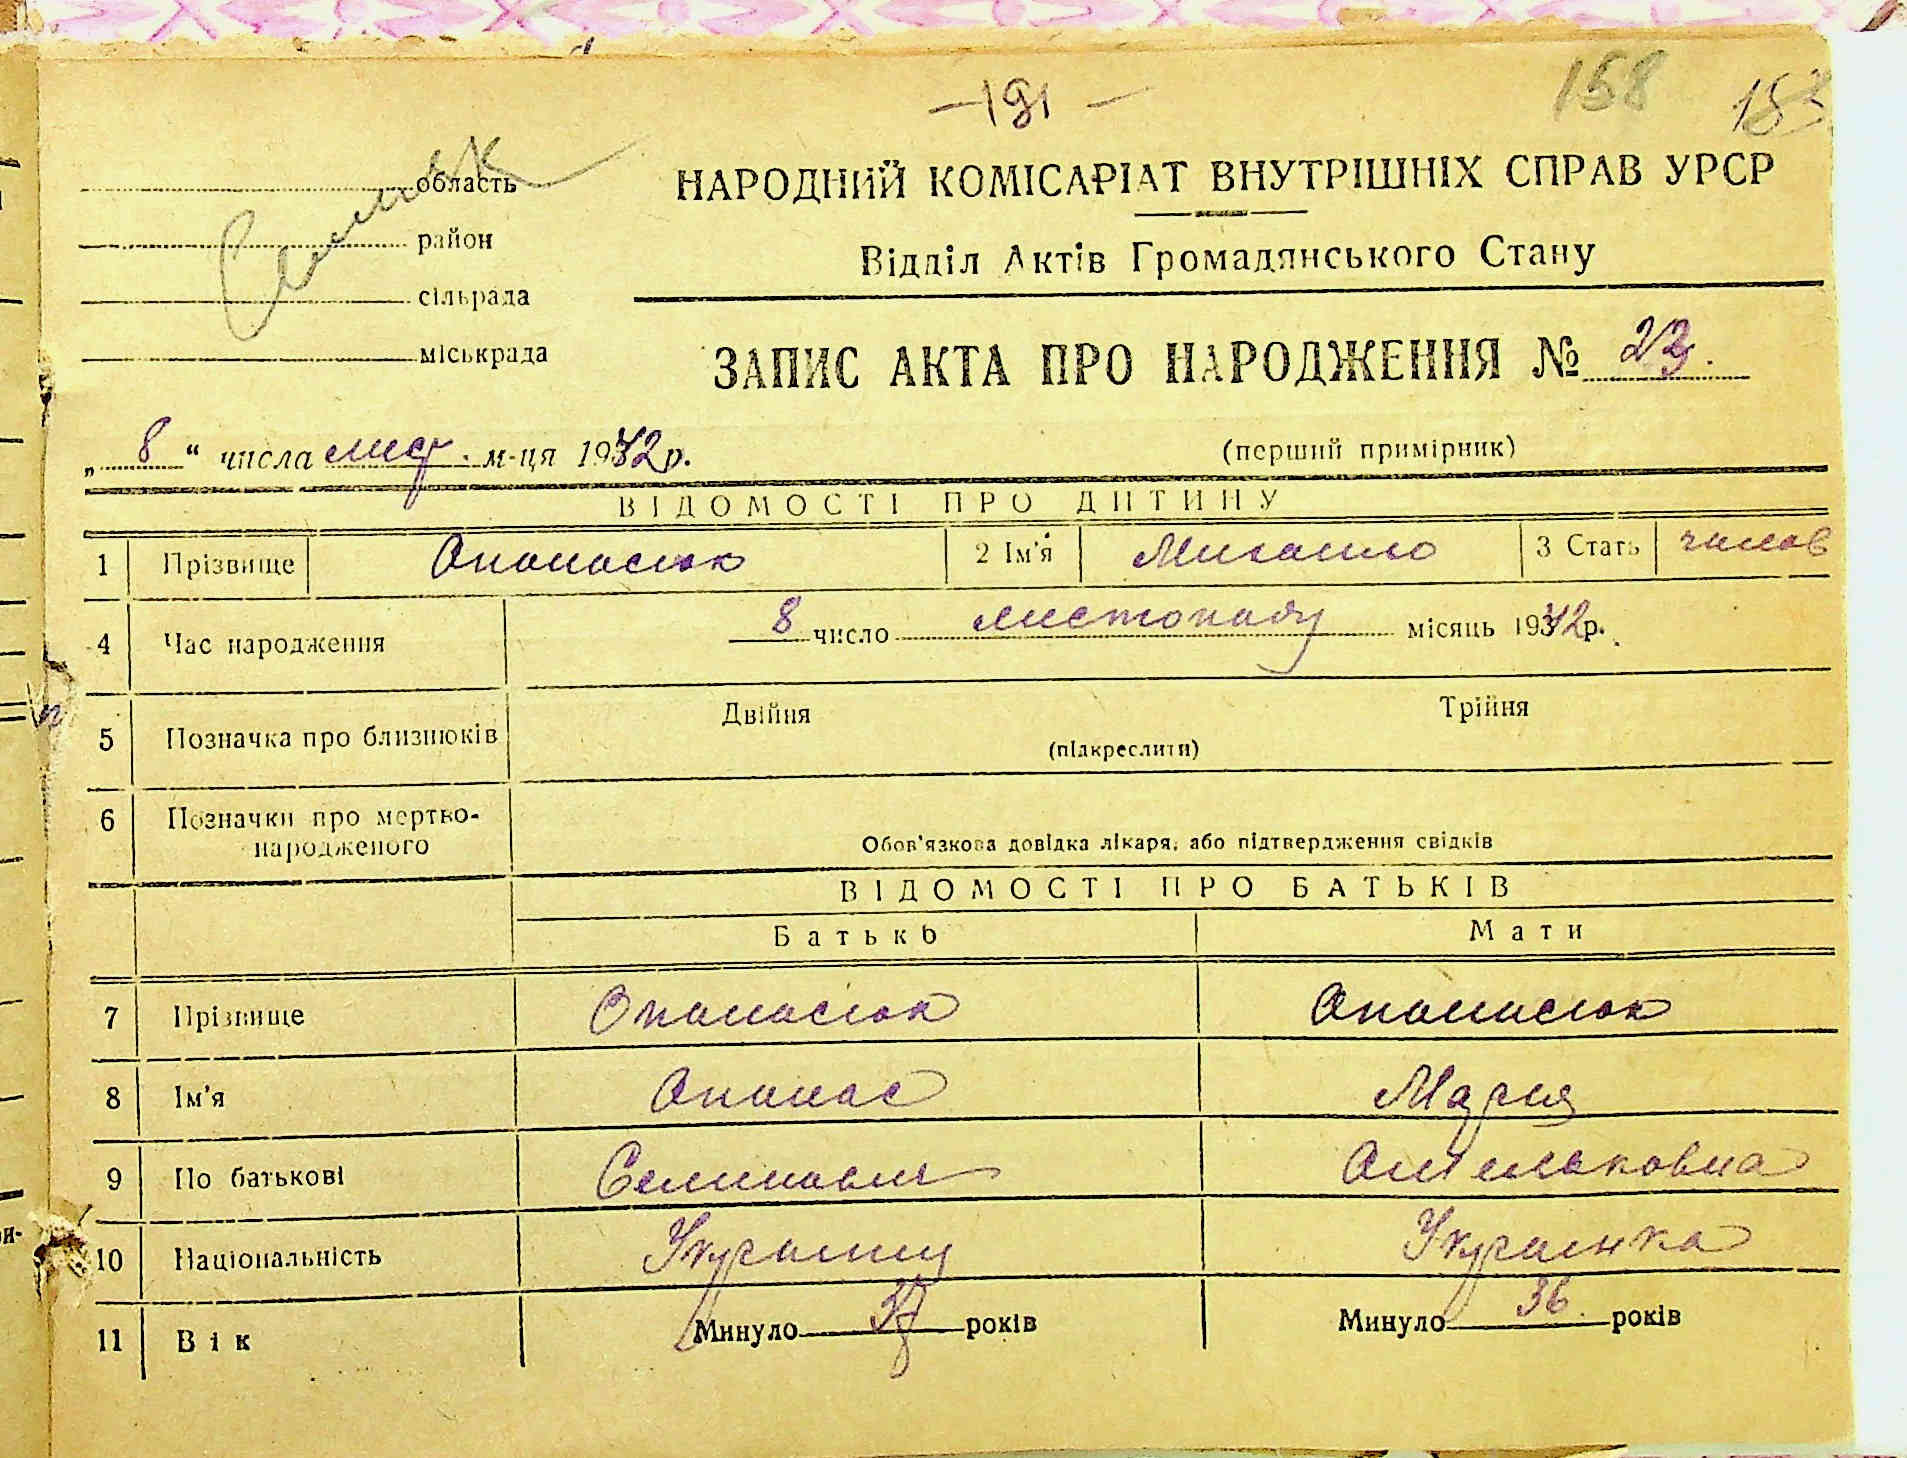 -191-
158 
область
район
сільрада
міськрада
НАРОДНИЙ КОМІСАРІАТ ВНУТРІШНІХ СПРАВ УРСР
Відділ Актів Громадянського Стану
ЗАПИС АКТА ПРО НАРОДЖЕННЯ № 23.
„8“ числа лист. м-ця 1942 р.
(перший примірник)
ВІДОМОСТІ ПРО ДИТИНУ
1 Прізвище Опанасюк 2 Ім'я Михайло 3 Стать чолов
4 Час народження 8 число листопаду місяць 1942 р.
5 Позначка про близнюків Двійня Трійня
(підкреслити)
6 Позначки про мертво-
народженого
Обов'язкова довідка лікаря, або підтвердження свідків
ВІДОМОСТІ ПРО БАТЬКІВ
Батько Мати
7 Прізвище Опанасюк Опанасюк
8 Ім'я Опанас Мария
9 По батькові Омельковна
10 Національність Українц Українка
11 Вік Минуло 37 років Минуло 36. років